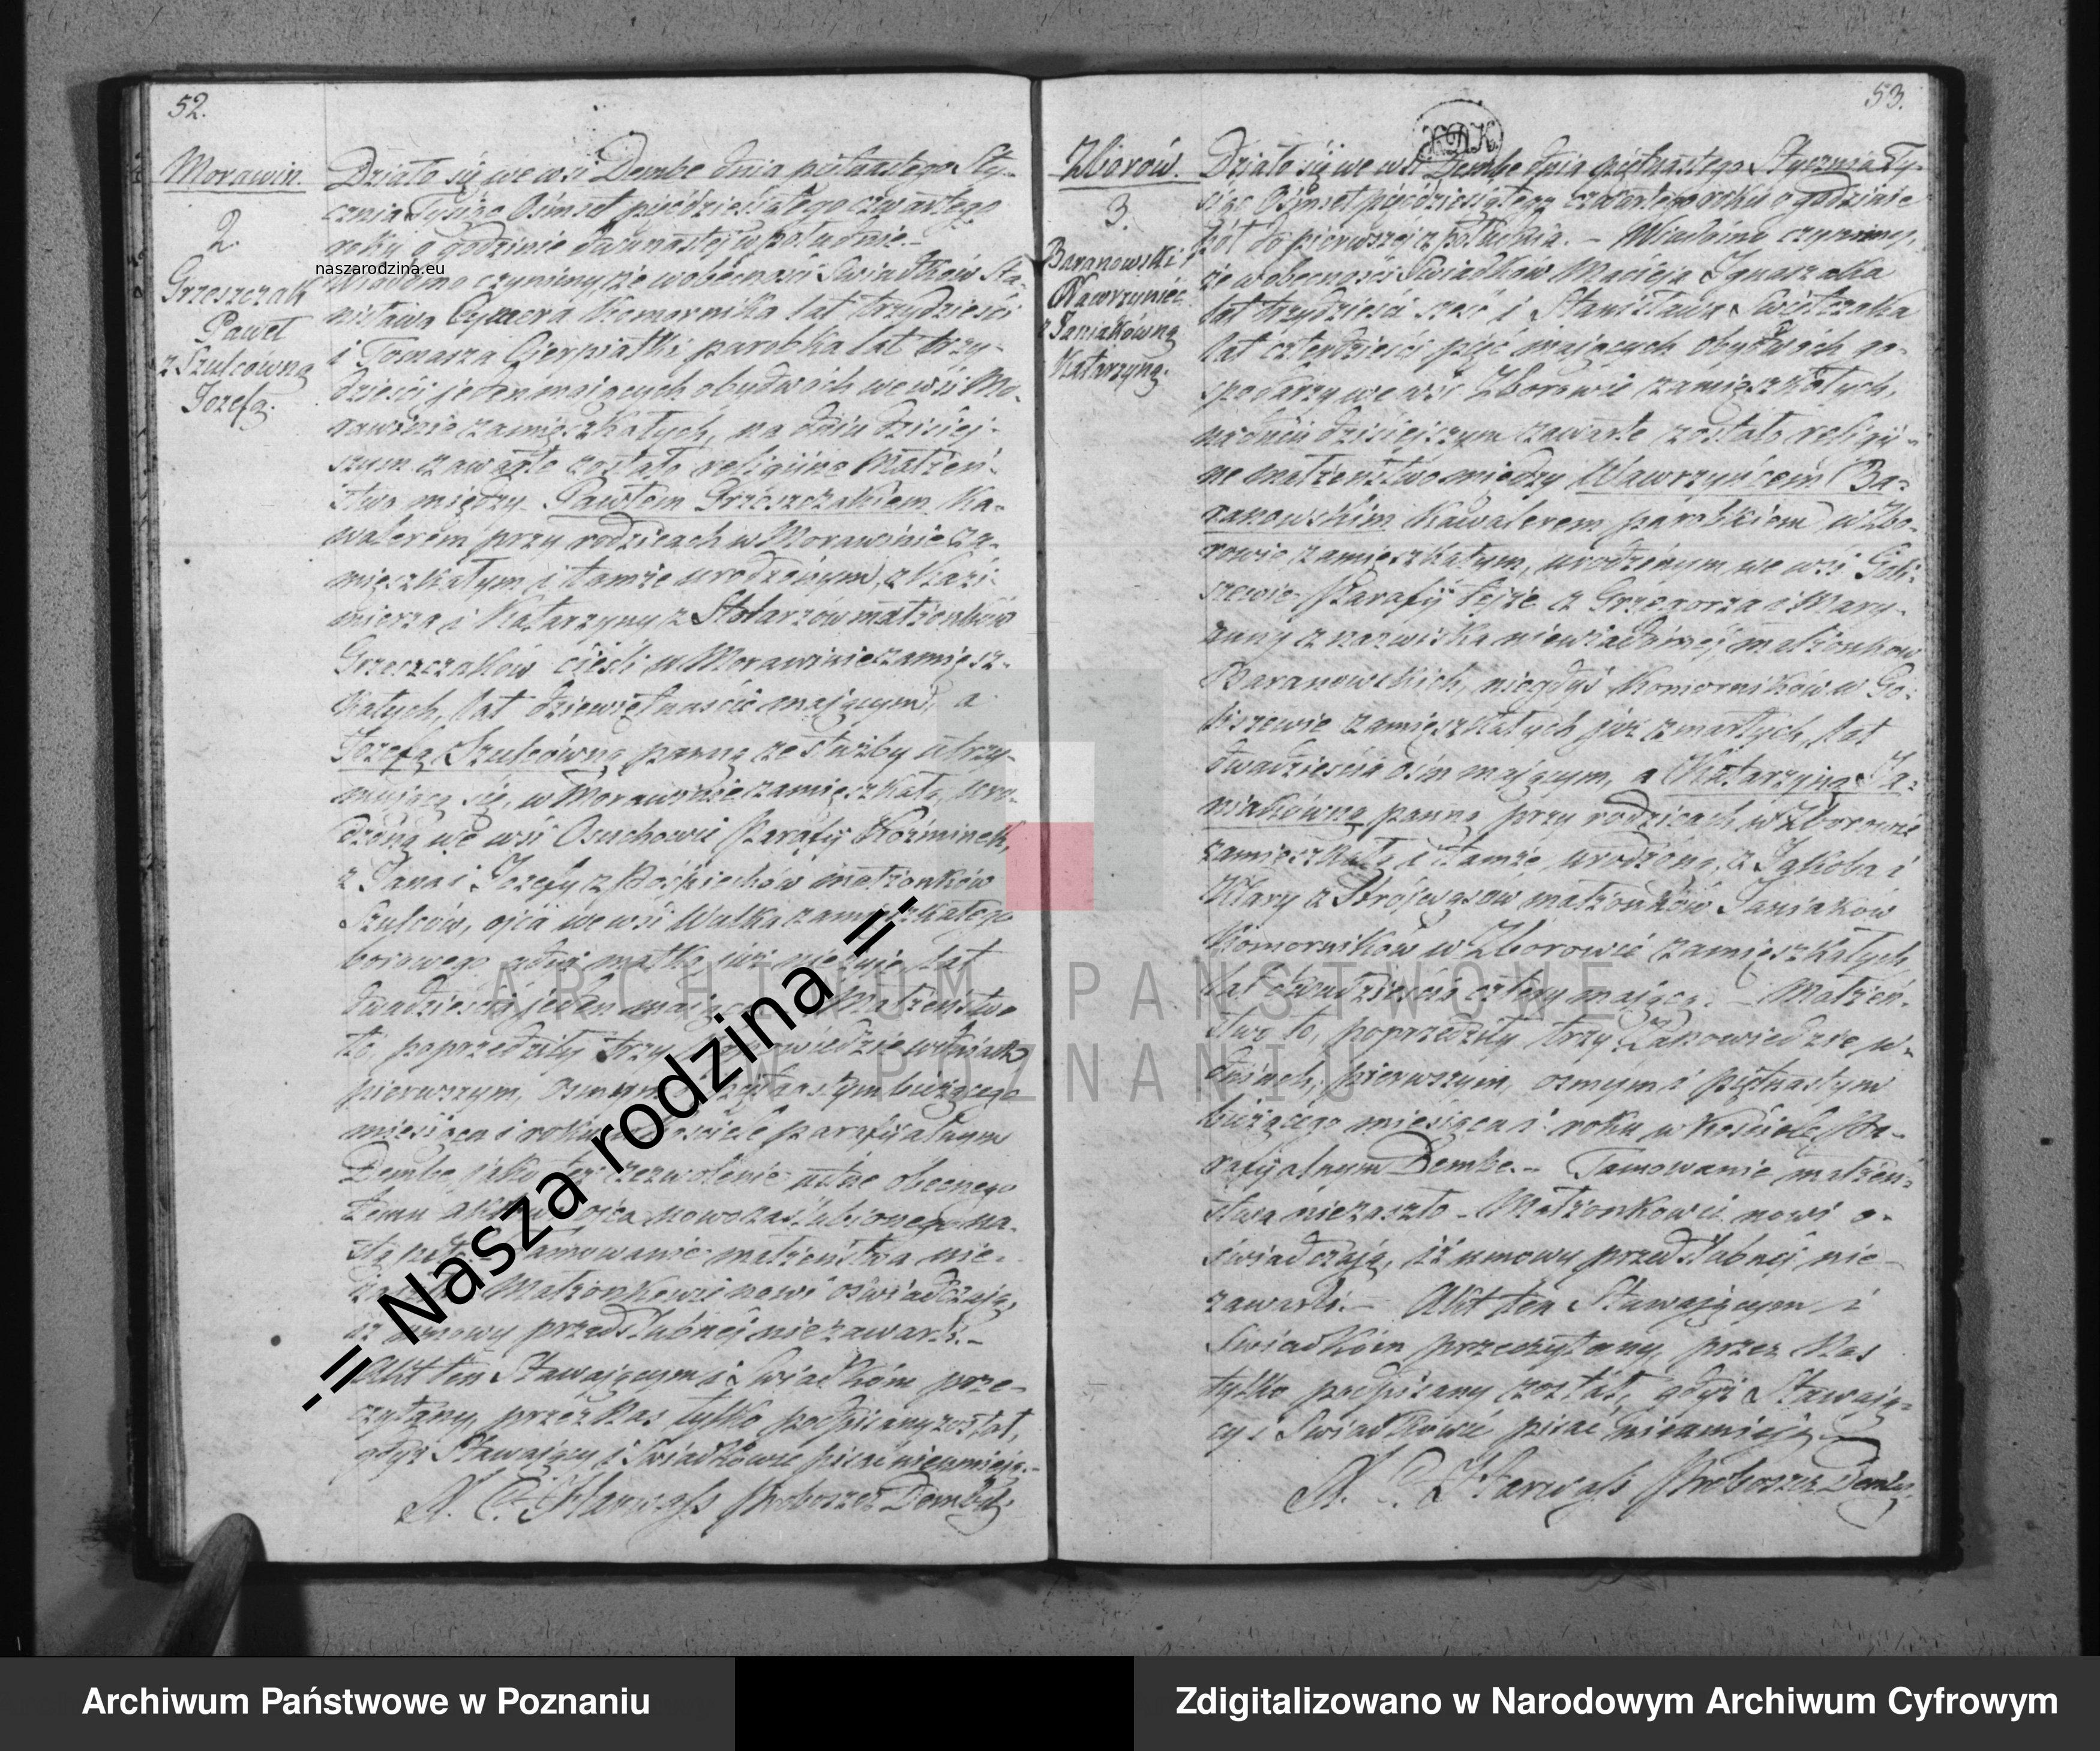 52.
Morawin.
2.
Grzeszczak
Paweł
z Szulcówną
Jozefą.
Działo się we wsi Dembe dnia piętnastego Sty-
cznia Tysiąc Ośmset pięćdziesiątego czwartego
roku o godzinie dwunastej w południe.-
naszarodzina.eu
Wiadomo czynimy, że w obecności Świadków Sta-
nisława Komornika lat trzydzieści
i Tomasza Cierpiatki parobka lat trzy-
dzieści jeden mających obydwóch we wsi Mo-
rawinie zamięszkałych, na dniu dzisiej-
szym zawarte zostało religijne Małżeń-
stwo między Pawłem Grzeszczakiem Ka-
walerem przy rodzicach w Morawinie za-
mięszkałym i tamże urodzonym, z Kazi-
mierza i Katarzyny z Stolarzów małżonków
Grzeszczaków cieśli w Morawinie zamięsz-
kałych, lat dziewiętnaście mającym, a
Jozefą Szulcówną panną ze służby utrzy-
mującą się, w Morawinie zamięszkałą, uro-
dzoną we wsi Osuchowie Parafij Koźminek,
z Jana i Jozefy z Pośpiechów małżonków
Szulców, ojca we wsi Wulka zamięszkałego
borowego gdyż matka już nieżyje, lat
dwadzieścia jeden mającą. Małżeństwo
to, poprzedziły trzy Zapowiedzie w dniach
pierwszym, osmym i piętnastym bieżącego
miesiąca i roku w Kościele parafijalnym
Dembe jako też zezwolenie ustne obecnego
temu aktowi ojca nowozaślubionego na-
stąpiło. Tamowanie małżeństwa nie-
zaszło. Małżonkowie nowi oświadczają,
iż umowy przedślubnej niezawarli.-
Akt ten Stawającym i Świadkom prze-
czytany, przez Nas tylko podpisany został,
gdyż Stawający i Świadkowie pisać nieumieją.-
Proboszcz Dembski
-= Nasza rodzina =-
53.
Zborów.
3.
Baranowski
Wawrzyniec
z Janiakówną
Katarzyną.
Działo się we wsi Dembe dnia piętnastego Stycznia Ty-
siąc Ośmset pięćdziesiątego czwartego roku o godzinie
pół do pierwszej z południa. - Wiadomo czynimy,
że w obecności Świadków Macieja Ignaszaka
lat trzydzieści sześć i Stanisława Swiętczaka
lat czterdzieści pięć mających obydwóch go-
spodarzy we wsi Zborowie zamięszkałych,
na dniu dzisiejszym zawarte zostało religij-
ne małżeństwo między Wawrzyńcem Ba-
ranowskim Kawalerem parobkiem w Zbo-
rowie zamięszkałym, urodzonym we wsi Goli-
szewie Parafij tejże z Grzegorza i Mary-
anny z nazwiska niewiadomej małżonków
Baranowskich, niegdyś Komorników w Go-
liszewie zamięszkałych już zmarłych, lat
dwadzieścia ośm mającym, a Katarzyną Ja-
niakówną panną przy rodzicach w Zborowie
zamięszkałą i tamże urodzoną, z Jakoba i
Klary z Strojwąsow małżonków Janiaków
Komorników w Zborowie zamięszkałych
lat dwadzieścia cztery mającą. - Małżeń-
stwo to, poprzedziły trzy Zapowiedzie w-
dniach, pierwszym, osmym i piętnastym
bieżącego miesiąca i roku w Kościele Pa-
rafijalnym Dembe.- Tamowanie małżeń-
stwa niezaszło.- Małżonkowie nowi o-
świadczają, iż umowy przedślubnej nie-
zawarli.- Akt ten Stawającym i
Świadkom przeczytany, przez Nas
tylko podpisany został, gdyż Stawają-
cy i Świadkowie pisać nieumieją.-
Proboszcz Dembs.
ARCHIWUM PAŃSTWOWE
W POZNANIU
Archiwum Państwowe w Poznaniu
Zdigitalizowano w Narodowym Archiwum Cyfrowym